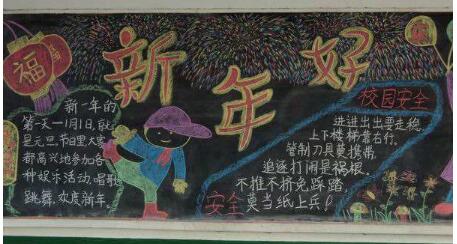 福
新年好
新一年的
第一天一1月1日,就
是元旦。节日里大家
都高兴地参加各
种娱乐活动,唱歌
跳舞,欢度新年。
校园安全
进进出出要走稳,
上下楼梯靠右行。
管制刀具莫携带,
追逐打闹是祸根。
不推不挤免踩踏,
安全莫当纸上兵!